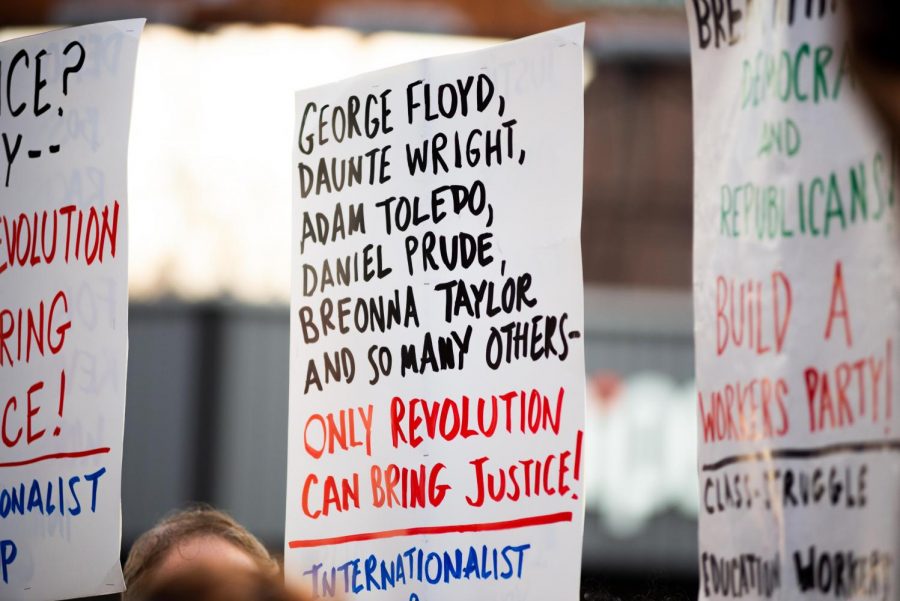 ICE?
Y--
EVOLUTION
RING
CE!
ONALIST
P
GEORGE FLOYD,
DAUNTE WRIGHT,
ADAM TOLEDO,
DANIEL PRUDE,
BREONNA TAYLOR
AND SO MANY OTHERS--
ONLY REVOLUTION
CAN BRING JUSTICE!
INTERNATIONALIST
DEMOCRA
AND
REPUBLICANS
BUILD A
WORKERS PARTY!
CLASS-STRUGGLE
EDUCATION WORKERS